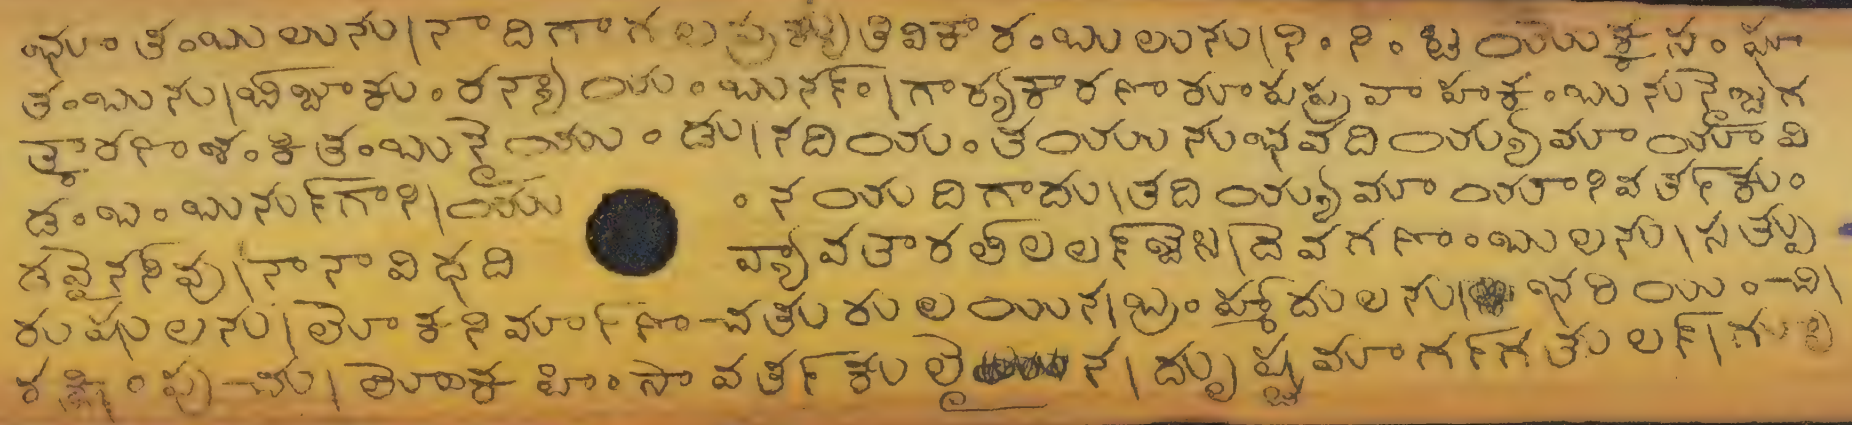 భూతంబులును।నాదిగాగల ప్రకృతివికారంబులును।నింనింటయొక్క సంఘా
తంబును।బీజాకుంరన్యాయంబునన్ం।గార్యకారణరూపప్రవాహకంబునునైజగ
త్కారణశంకితంబునైయుండు।నదియంతయును భవదియ్యమాయావి
డంబంబునన్గాని।యుంనయదిగాదు।తదియ్యమాయానివర్తకుం
డవైననీవు।నానావిధదివ్యావతారలీలలన్జెసి।దేవగణంబులను।సత్పు
రుషులను।లోకనిర్మాణచతురులయిన।బ్రంహ్మాదులను। భరియించి।
రక్షింపుచు।లోకహింసావర్తకులైన।దుష్టమార్గగతులన్।